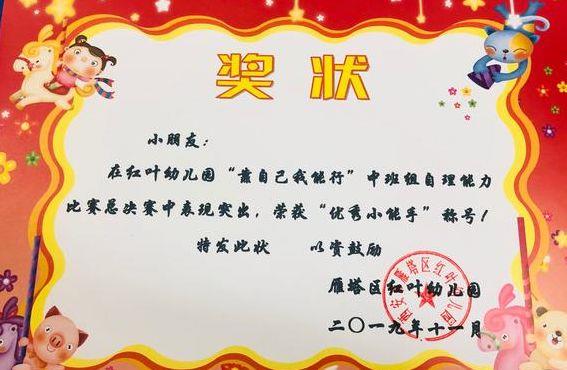 奖状
小朋友：
在红叶幼儿园“靠自己我能行”中班组自理能力
比赛总决赛中表现突出，荣获“优秀小能手”称号！
特发此状 以资鼓励
雁塔区红叶幼儿园
二〇一九年十一月
西安雁塔区红叶幼儿园